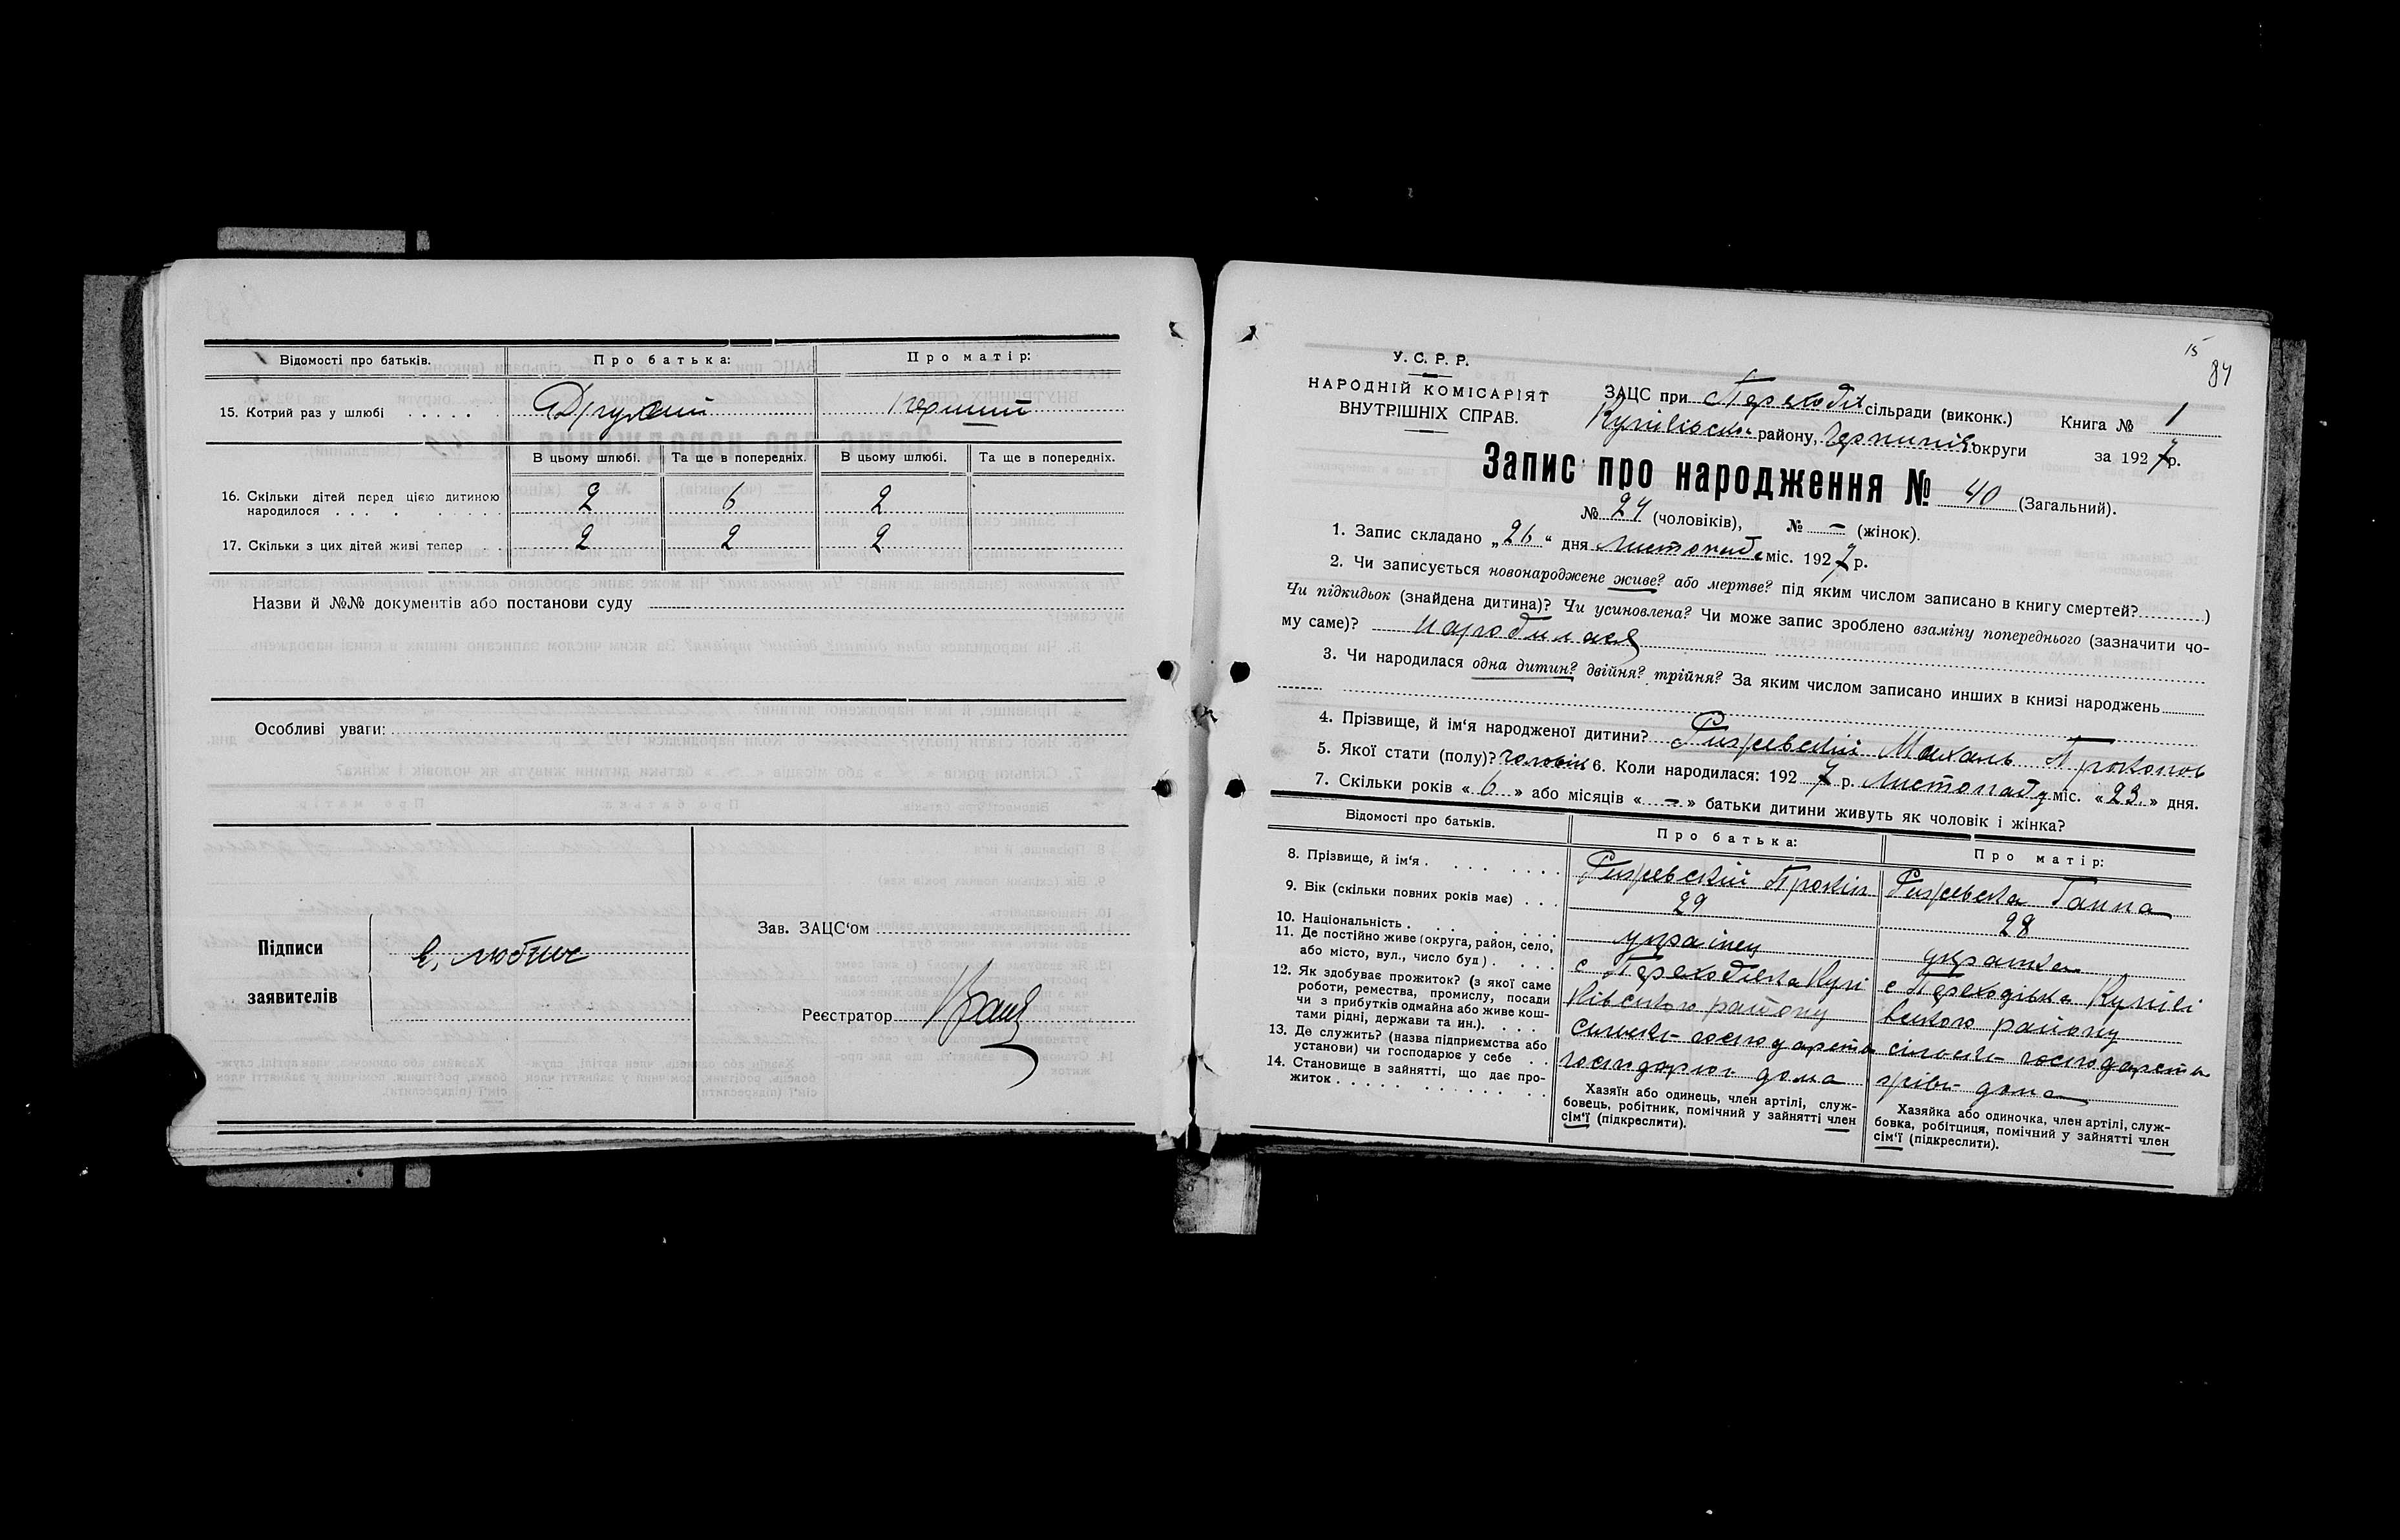 Відомості про батьків. Про батька: Про матір:
15. Котрий раз у шлюбі Другий перший
В цьому шлюбі. Та ще в попередніх. В цьому шлюбі. Та ще в попередніх.
16. Скільки дітей перед цією дитиною
народилося 2 6 2
17. Скільки з цих дітей живі тепер 2 2 2
Назви й №№ документів або постанови суду
Особливі уваги:
Підписи
заявителів
Зав. ЗАЦС'ом
Реєстратор
15
84
У. С. Р. Р.
НАРОДНІЙ КОМІСАРІЯТ
ВНУТРІШНІХ СПРАВ.
ЗАЦС при Переходів сільради (виконк.) Книга № 1
району, округи за 1927 р.
Запис про народження № 40 (Загальний).
№ 24 (чоловіків), № — (жінок).
1. Запис складано „26“ дня Листопада міс. 1927 р.
2. Чи записується новонароджене живе? або мертве? під яким числом записано в книгу смертей? )
Чи підкидьок (знайдена дитина)? Чи усиновлена? Чи може запис зроблено взаміну попереднього (зазначити чо-
му саме)? народилася
3. Чи народилася одна дитин? двійня? трійня? За яким числом записано инших в книзі народжень
4. Прізвище, й ім'я народженої дитини? Ризревский Михаль Проконов
5. Якої стати (полу)? чоловік 6. Коли народилася: 1927 р. Листопаду міс. «23» дня.
7. Скільки років «6» або місяців «—» батьки дитини живуть як чоловік і жінка?
Відомості про батьків. Про батька: Про матір:
8. Прізвище, й ім'я . Прокіп Ганна
9. Вік (скільки повних років має) . . . 29 28
10. Національність . українец украинка
11. Де постійно живе (округа, район, село,
або місто, вул., число буд.) . с Переходівка Купі с Переходівка Купилі
12. Як здобуває прожиток? (з якої саме
роботи, ремества, промислу, посади
чи з прибутків одмайна або живе кош-
тами рідні, держави та ин.). району вського району
13. Де служить? (назва підприємства або
установи) чи господарює у себе . .
14. Становище в зайнятті, що дає про-
житок господарює дома дома
Хазяїн або одинець, член артілі, служ-
бовець, робітник, помічний у зайнятті член
сім'ї (підкреслити).
Хазяйка або одиночка, член артілі, служ-
бовка, робітциця, помічний у зайнятті член
сім'ї (підкреслити).